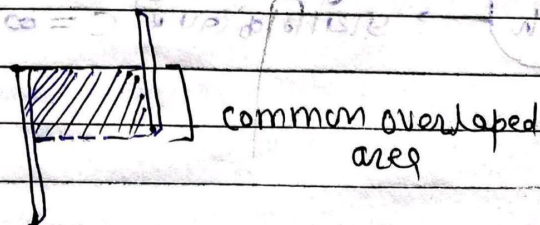 common overlaped
area